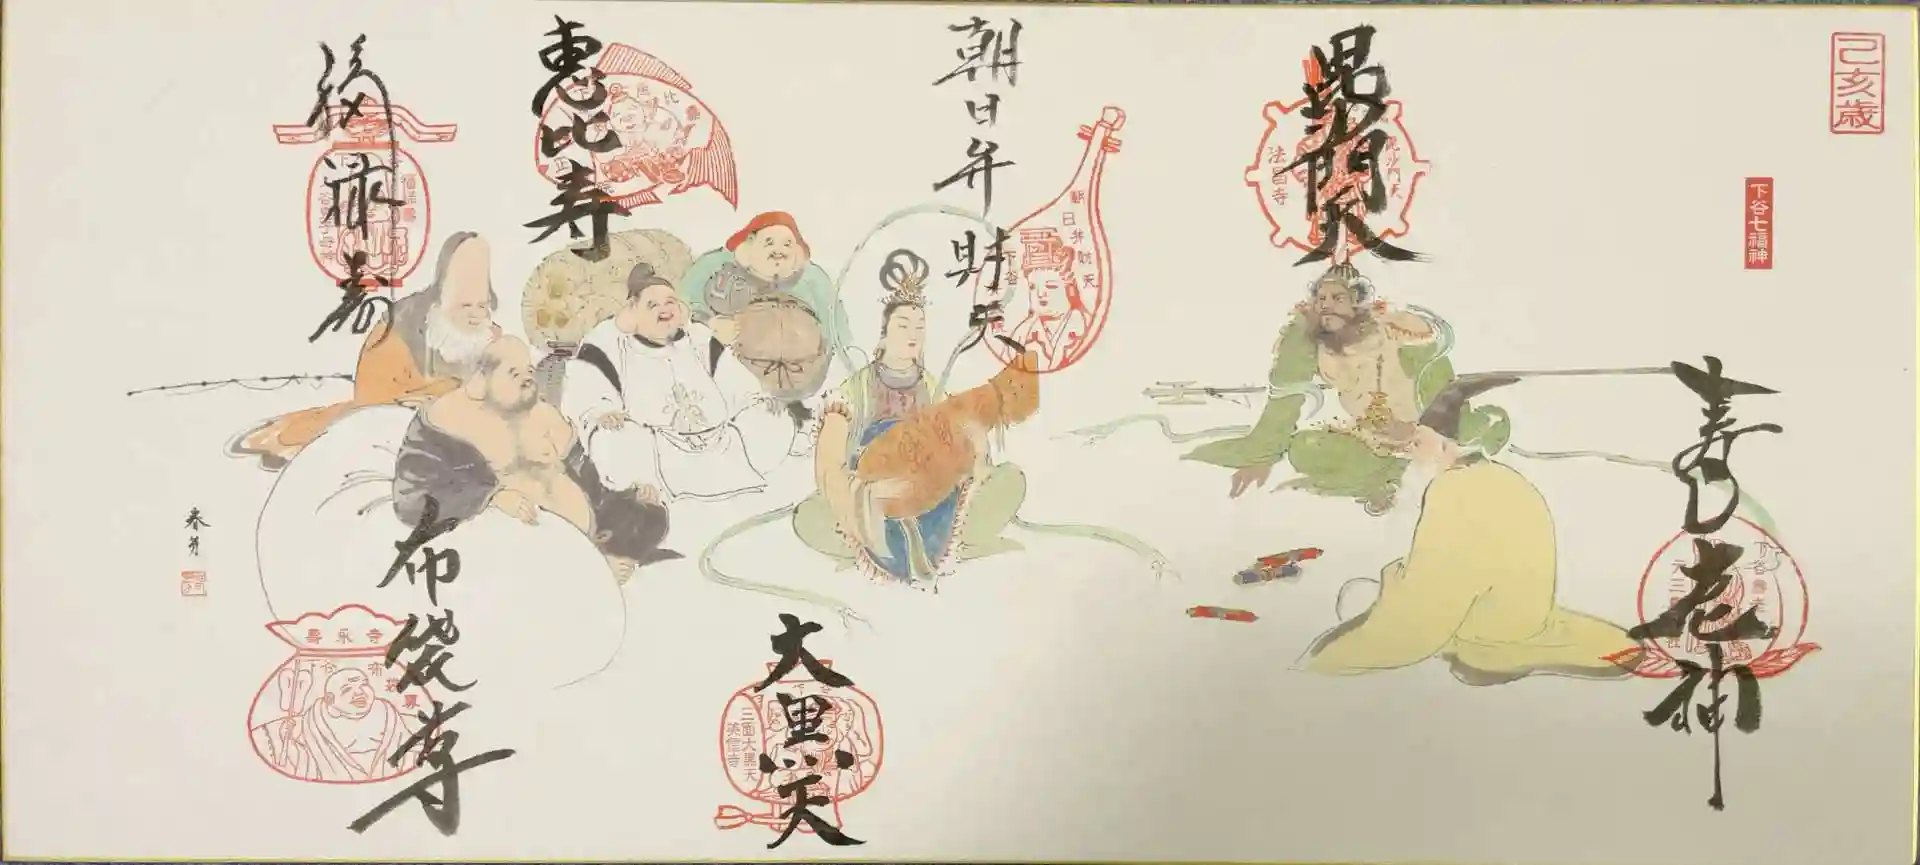 己亥歳
下谷七福神
寿老神
毘沙門天
毘沙門天
法昌寺
朝日弁財天
朝日弁財天
下谷
恵比寿
大黒天
三面大黒天
英信寺
福禄寿
布袋尊
寿永寺
下谷
布袋尊
春芳